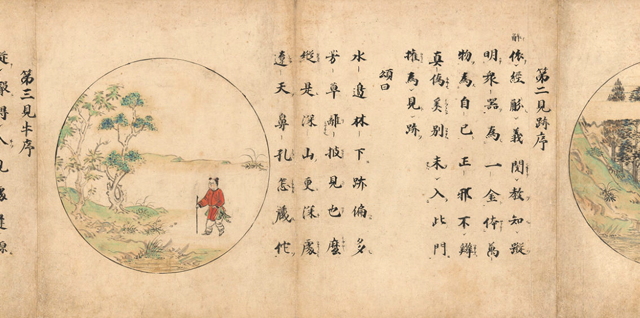 第二見跡序
依經解義閱教知蹤
明衆器為一金体萬
物為自己正邪不辨
真偽奚別未入此門
權為見跡
頌曰
水邊林下跡偏多
芳草離披見也麼
縱是深山更深處
遼天鼻孔怎藏佗
第三見牛序
從聲得入見處逢源